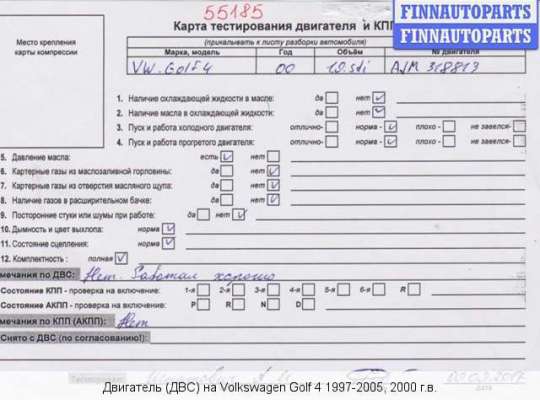 55185
FINNAUTOPARTS
FINNAUTOPARTS
Место крепления карты компрессии
Карта тестирования двигателя и КПП
(прикалывать к листу разборки автомобиля)
Марка, модель Год Объём № двигателя
VW. Golf 4 00 1.9. AJM 328813
1. Наличие охлаждающей жидкости в масле: да нет
2. Наличие масла в охлаждающей жидкости: да нет
3. Пуск и работа холодного двигателя: отлично- норма - плохо - не завелся-
4. Пуск и работа прогретого двигателя: отлично- норма - плохо - не завелся-
5. Давление масла: есть нет
6. Картерные газы из маслозаливной горловины: да нет
7. Картерные газы из отверстия масляного щупа: да нет
8. Наличие газов в расширительном бачке: да нет
9. Посторонние стуки или шумы при работе: да нет
10. Дымность и цвет выхлопа: норма
11. Состояние сцепления: норма
12. Комплектность : полная
мечания по ДВС: Нет. Работал хорошо
Состояние КПП - проверка на включение: 1-я 2-я 3-я 4-я 5-я 6-я R
Состояние АКПП - проверка на включение: P R N D
мечания по КПП (АКПП): Нет
Снято с ДВС (по согласованию!):
Двигатель (ДВС) на Volkswagen Golf 4 1997-2005, 2000 г.в.